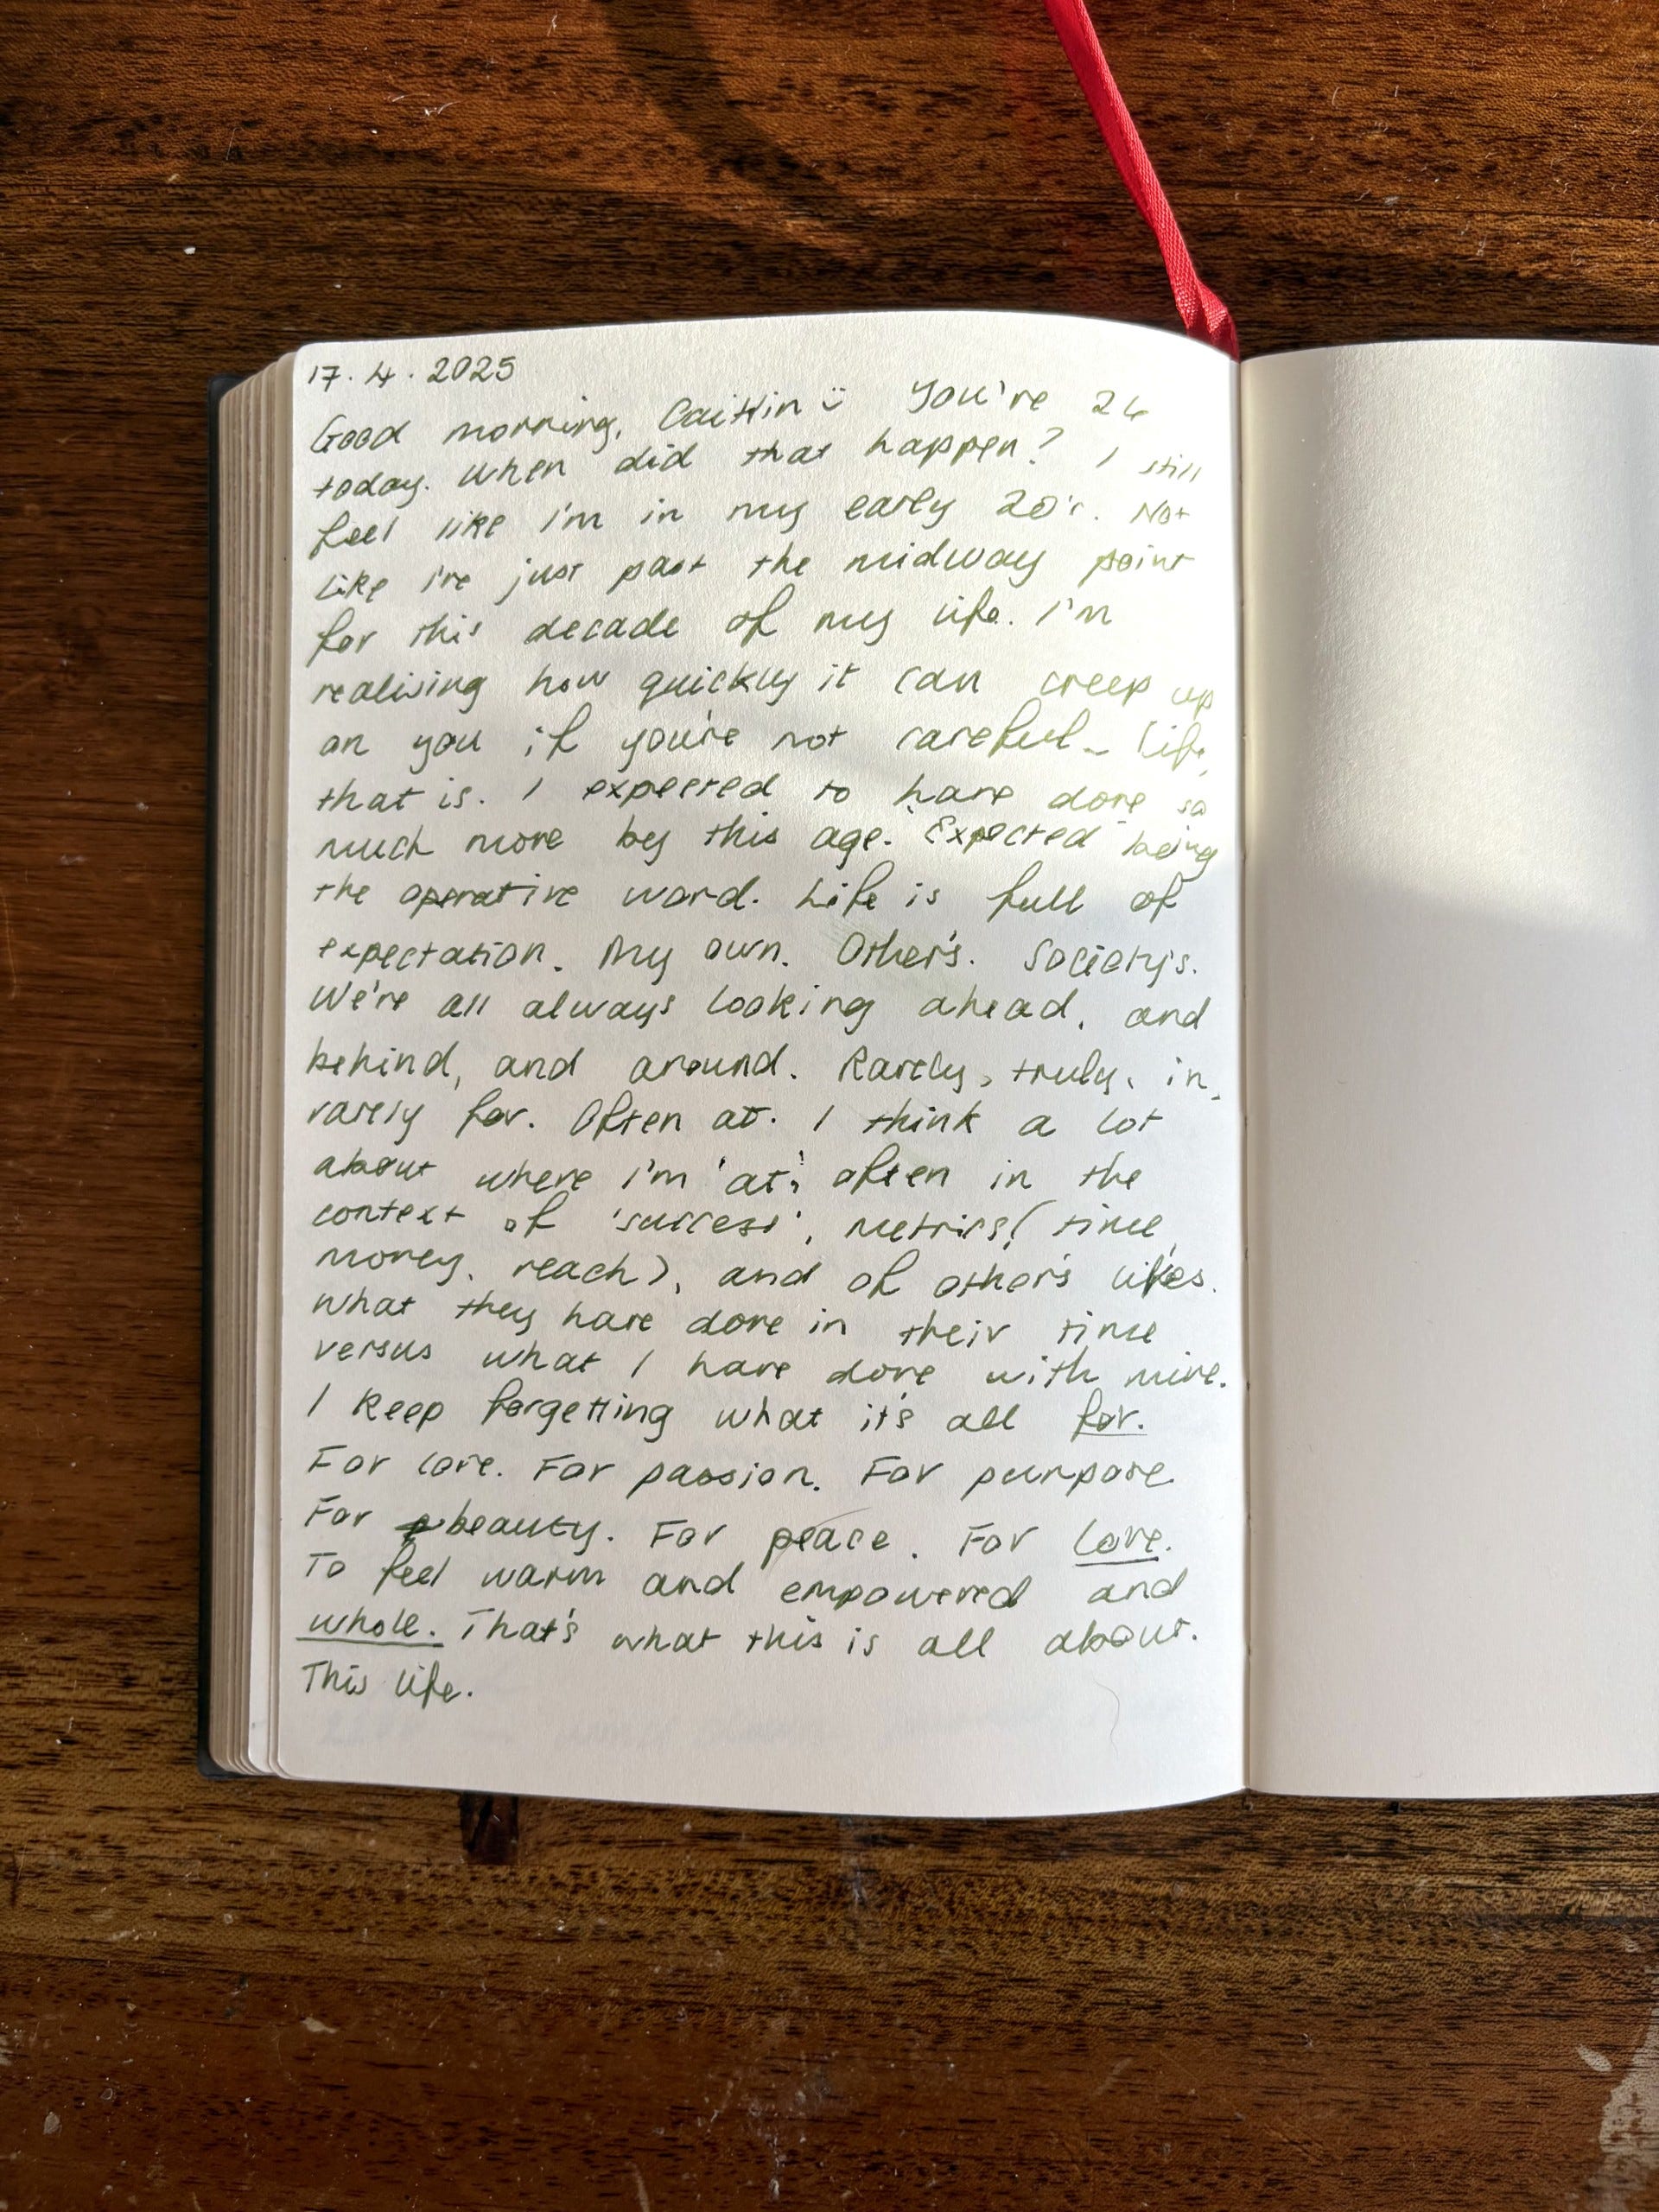 17.4.2025
Good morning, Caitlin :) You're 26
today. When did that happen? I still
feel like I'm in my early 20's. Not
like I've just past the midway point
for this decade of my life. I'm
realising how quickly it can creep up
on you if you're not careful - life,
that is. I expected to have done so
much more by this age. Expected being
the operative word. Life is full of
expectation. My own. Other's. Society's.
We're all always looking ahead, and
behind, and around. Rarely, truly, in,
rarely for. Often at. I think a lot
about where I'm 'at', often in the
context of 'success', metrics (time,
money, reach), and of other's lifes.
What they have done in their time
versus what I have done with mine.
I keep forgetting what it's all for.
For love. For passion. For purpose
For beauty. For peace. For love.
To feel warm and empowered and
whole. That's what this is all about.
This life.